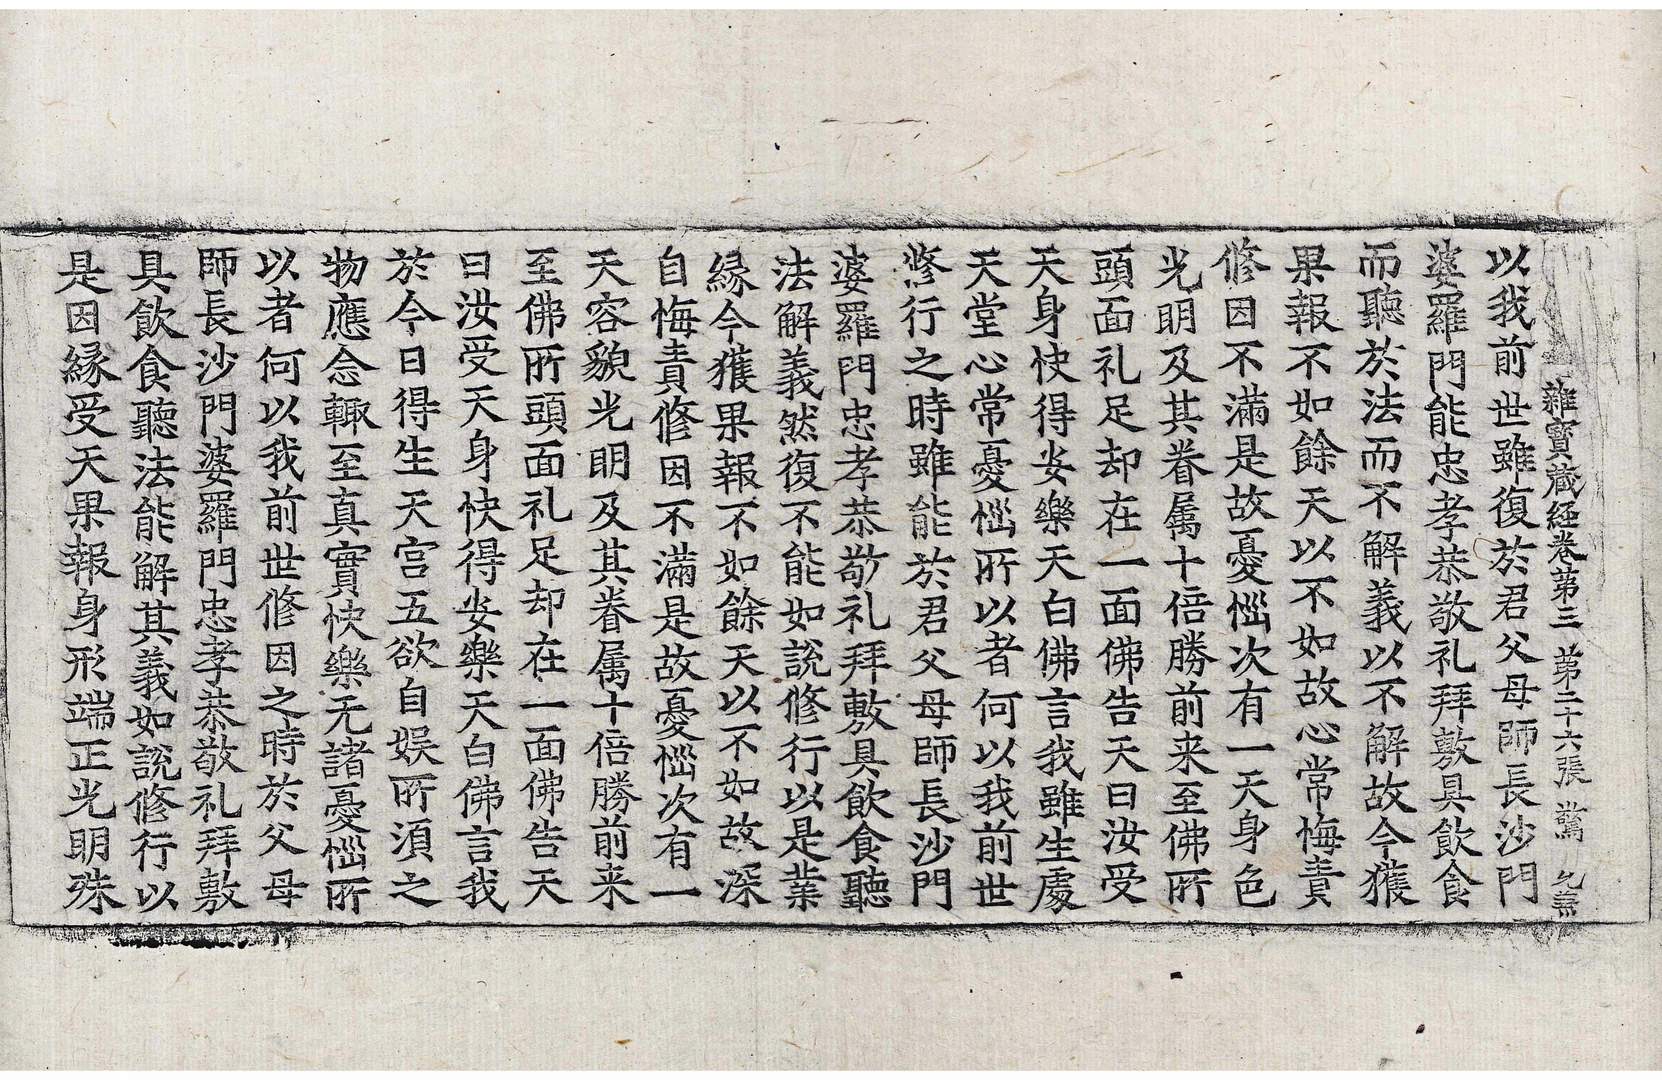 雜寶藏經卷第三 第二十六張 驚
以我前世雖復於君父母師長沙門
婆羅門能忠孝恭敬礼拜敷具飲食
而聽於法而不解義以不解故今獲
果報不如餘天以不如故心常悔責
修因不滿是故憂惱次有一天身色
光明及其眷属十倍勝前来至佛所
頭面礼足却在一面佛告天曰汝受
天身快得安樂天白佛言我雖生處
天堂心常憂惱所以者何以我前世
修行之時雖能於君父母師長沙門
婆羅門忠孝恭敬礼拜敷具飲食聽
法解義然復不能如說修行以是業
緣今獲果報不如餘天以不如故深
自悔責修因不滿是故憂惱次有一
天容貌光明及其眷属十倍勝前来
至佛所頭面礼足却在一面佛告天
曰汝受天身快得安樂天白佛言我
於今日得生天宫五欲自娱所湏之
物應念輙至真實快樂无諸憂惱所
以者何以我前世修因之時於父母
師長沙門婆羅門忠孝恭敬礼拜敷
具飲食聽法能解其義如說修行以
是因緣受天果報身形端正光明殊